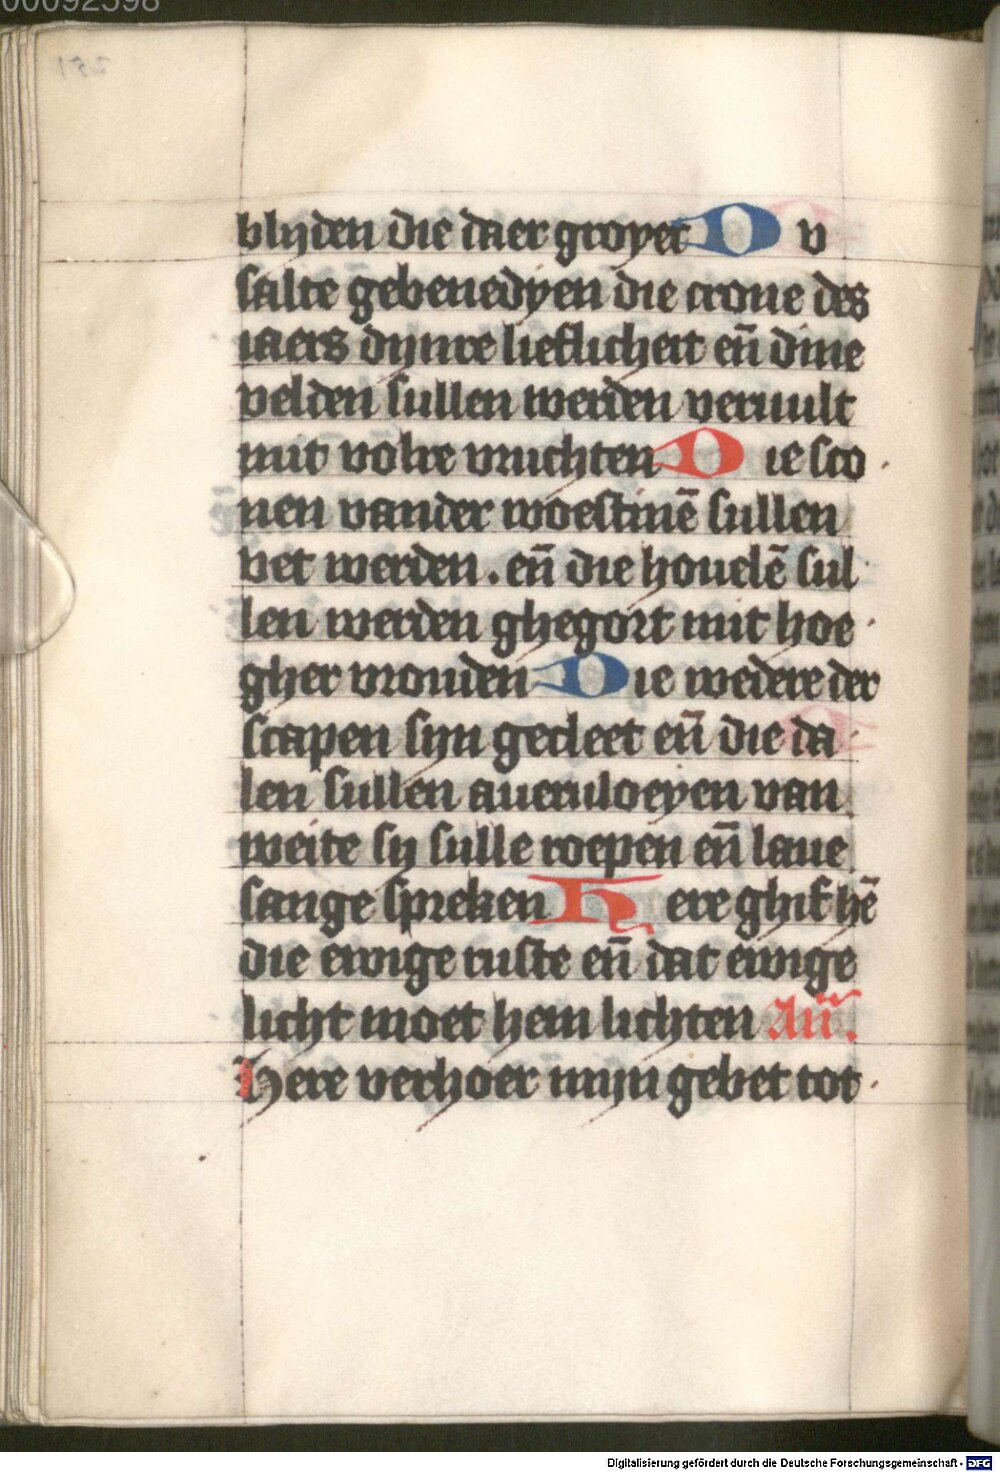 00092598
251
blyden die daer groyet D v
salte gebenedyen die crone des
iaers dynre lieflicheit en̄ dine
velden sullen werden veruult
mit volre vruchten D ie sco
nen vander woestinē sullen
vet werden . en̄ die houelē sul
len werden ghegort mit hoe
gher vrouden D ie wedere der
scapen syn gecleet en̄ die da
len sullen aueruloeyen van
weite sy sulle roepen en̄ laue
sange spreken H ere ghif hē
die ewige ruste en̄ dat ewige
licht moet hem lichten Añ.
Here verhoer myn gebet tot
Digitalisierung gefördert durch die Deutsche Forschungsgemeinschaft - DFG